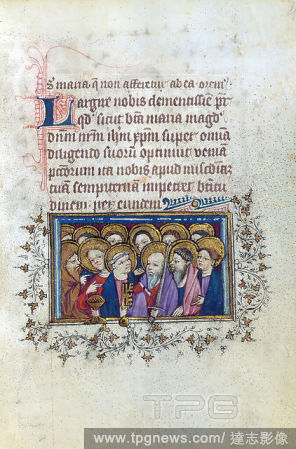 s maria. q̄ non afferetur ab ea. orem⁹.
Largire nobis clementissime pr̄
qd̓ sicut bt̄a maria magd̓
dnm̄ nrm̄ ihm̄ xp̄m super om̄ia
diligendo suorum optinuit veniā
pctōrum ita nobis apud misc̄diaz
tuā sempiternā impetret btītu
dinem. per eundem
TPG
www.tpgnews.com / 達志影像